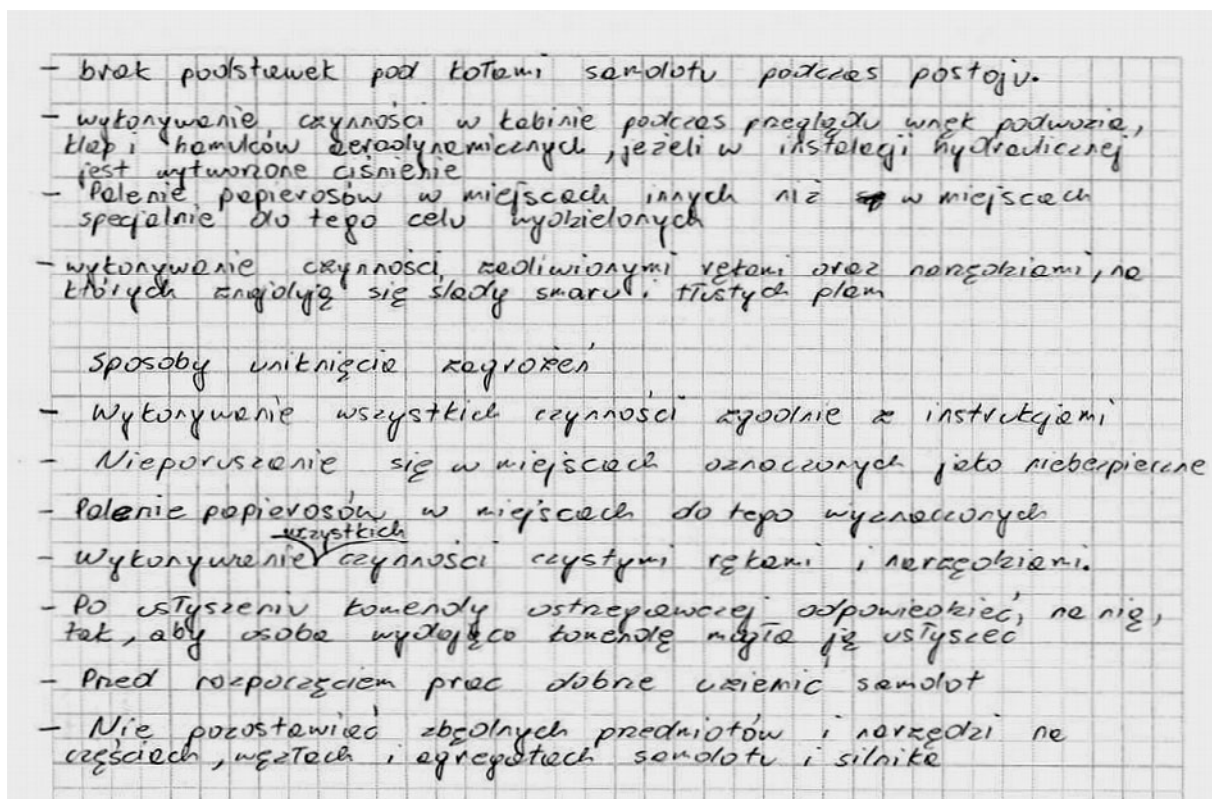 - brak podstawek pod kołami samolotu podczas postoju.
- wykonywanie czynności w kabinie podczas przeglądu wnęk podwozia,
klap i hamulców aerodynamicznych, jeżeli w instalacji hydraulicznej
jest wytworzone ciśnienie
- Palenie papierosów w miejscach innych niż w miejscach
specjalnie do tego celu wydzielonych
- wykonywanie czynności zaoliwionymi rękami oraz narzędziami, na
których znajdują się ślady smaru i tłustych plam
Sposoby uniknięcia zagrożeń
- Wykonywanie wszystkich czynności zgodnie z instrukcjami
- Nieporuszanie się w miejscach oznaczonych jako niebezpieczne
- Palenie papierosów w miejscach do tego wyznaczonych
wszystkich
- Wykonywanie czynności czystymi rękami i narzędziami.
- Po usłyszeniu komendy ostrzegawczej odpowiedzieć na nią,
tak, aby osoba wydająca komendę mogła ją usłyszeć
- Przed rozpoczęciem prac dobrze uziemić samolot
- Nie pozostawiać zbędnych przedmiotów i narzędzi na
częściach, węzłach i agregatach samolotu i silnika